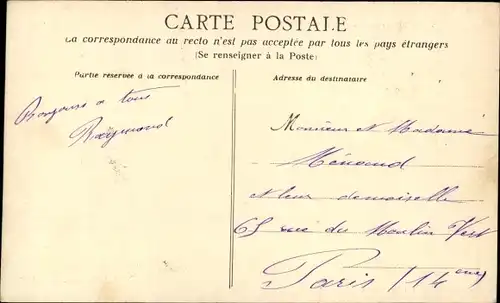 CARTE POSTALE
La correspondance au recto n'est pas acceptée par tous les pays étrangers
(Se renseigner à la Poste)
Partie réservée à la correspondance
Adresse du destinataire
Bonjours a tous
Raymond
Monsieur et Madame
et leur demoiselle
65 rue du Moulin Vert
Paris (14eme)